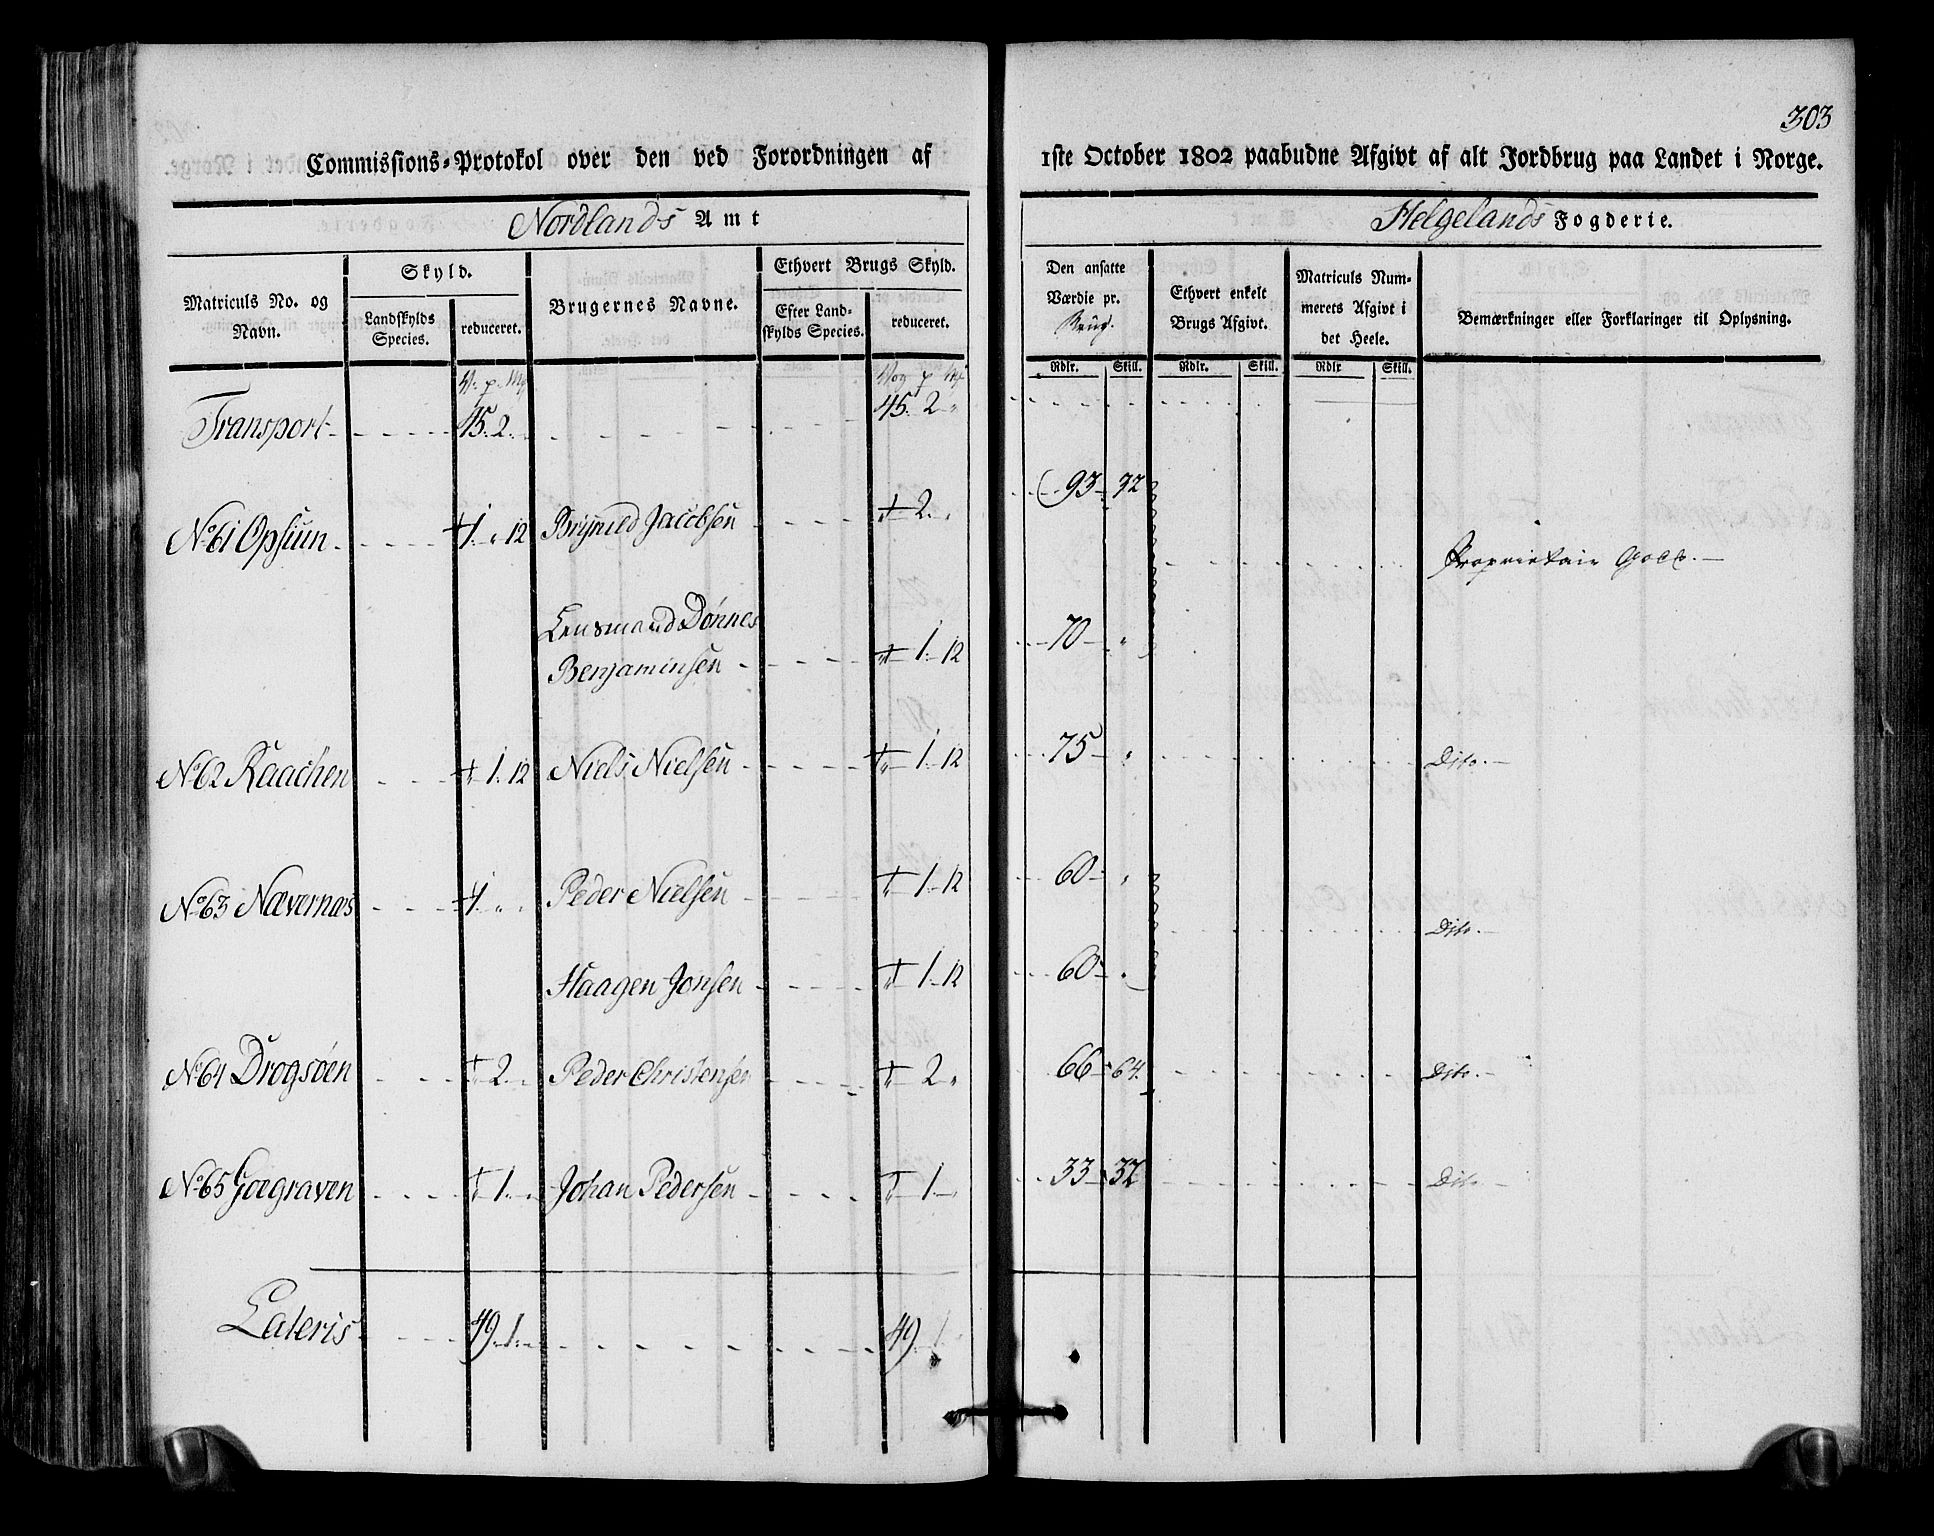 303
Commissions-Protokol over den ved Forordningen af 1ste October 1802 paabudne Afgivt af alt Jordbrug paa Landet i Norge.
Nordlands Amt
Helgelands Fogderie.
Matriculs No. og Navn.
Skyld.
Landskylds Species.
reduceret.
Brugernes Navne.
Ethvert Brugs Skyld.
Efter Landskylds Species.
reduceret.
Den ansatte Værdie pr. Brug.
Ethvert enkelt Brugs Afgivt.
Matriculs Nummerets Afgivt i det Heele.
Bemærkninger eller Forklaringer til Oplysning.
Rdlr. Skill. Rdlr. Skill. Rdlr Skill.
V. p. Mk
Vog p Mk
Transport 45. 2. 45. 2 "
No 61 Opsiun 1. " 12 Jacobsen 2. " 93 32 Proprietair
Lensmand Dønnes
Benjaminsen 1. 12 70 "
No 62 Kaachen 1. 12 Niels Nielsen 1. 12 75 " Dito.
No 63 Nævernæs 1 " " Peder Nielsen 1. 12 60 "
Dito.
Haagen Jonsen 1. 12 60 "
No 64 Drogsøen 2. Peder Christensen 2 " 66 64. Dito.
No 65 Goegraven 1. Johan Pedersen 1 33 32 Dito
Lateris 49. 1. 49. 1